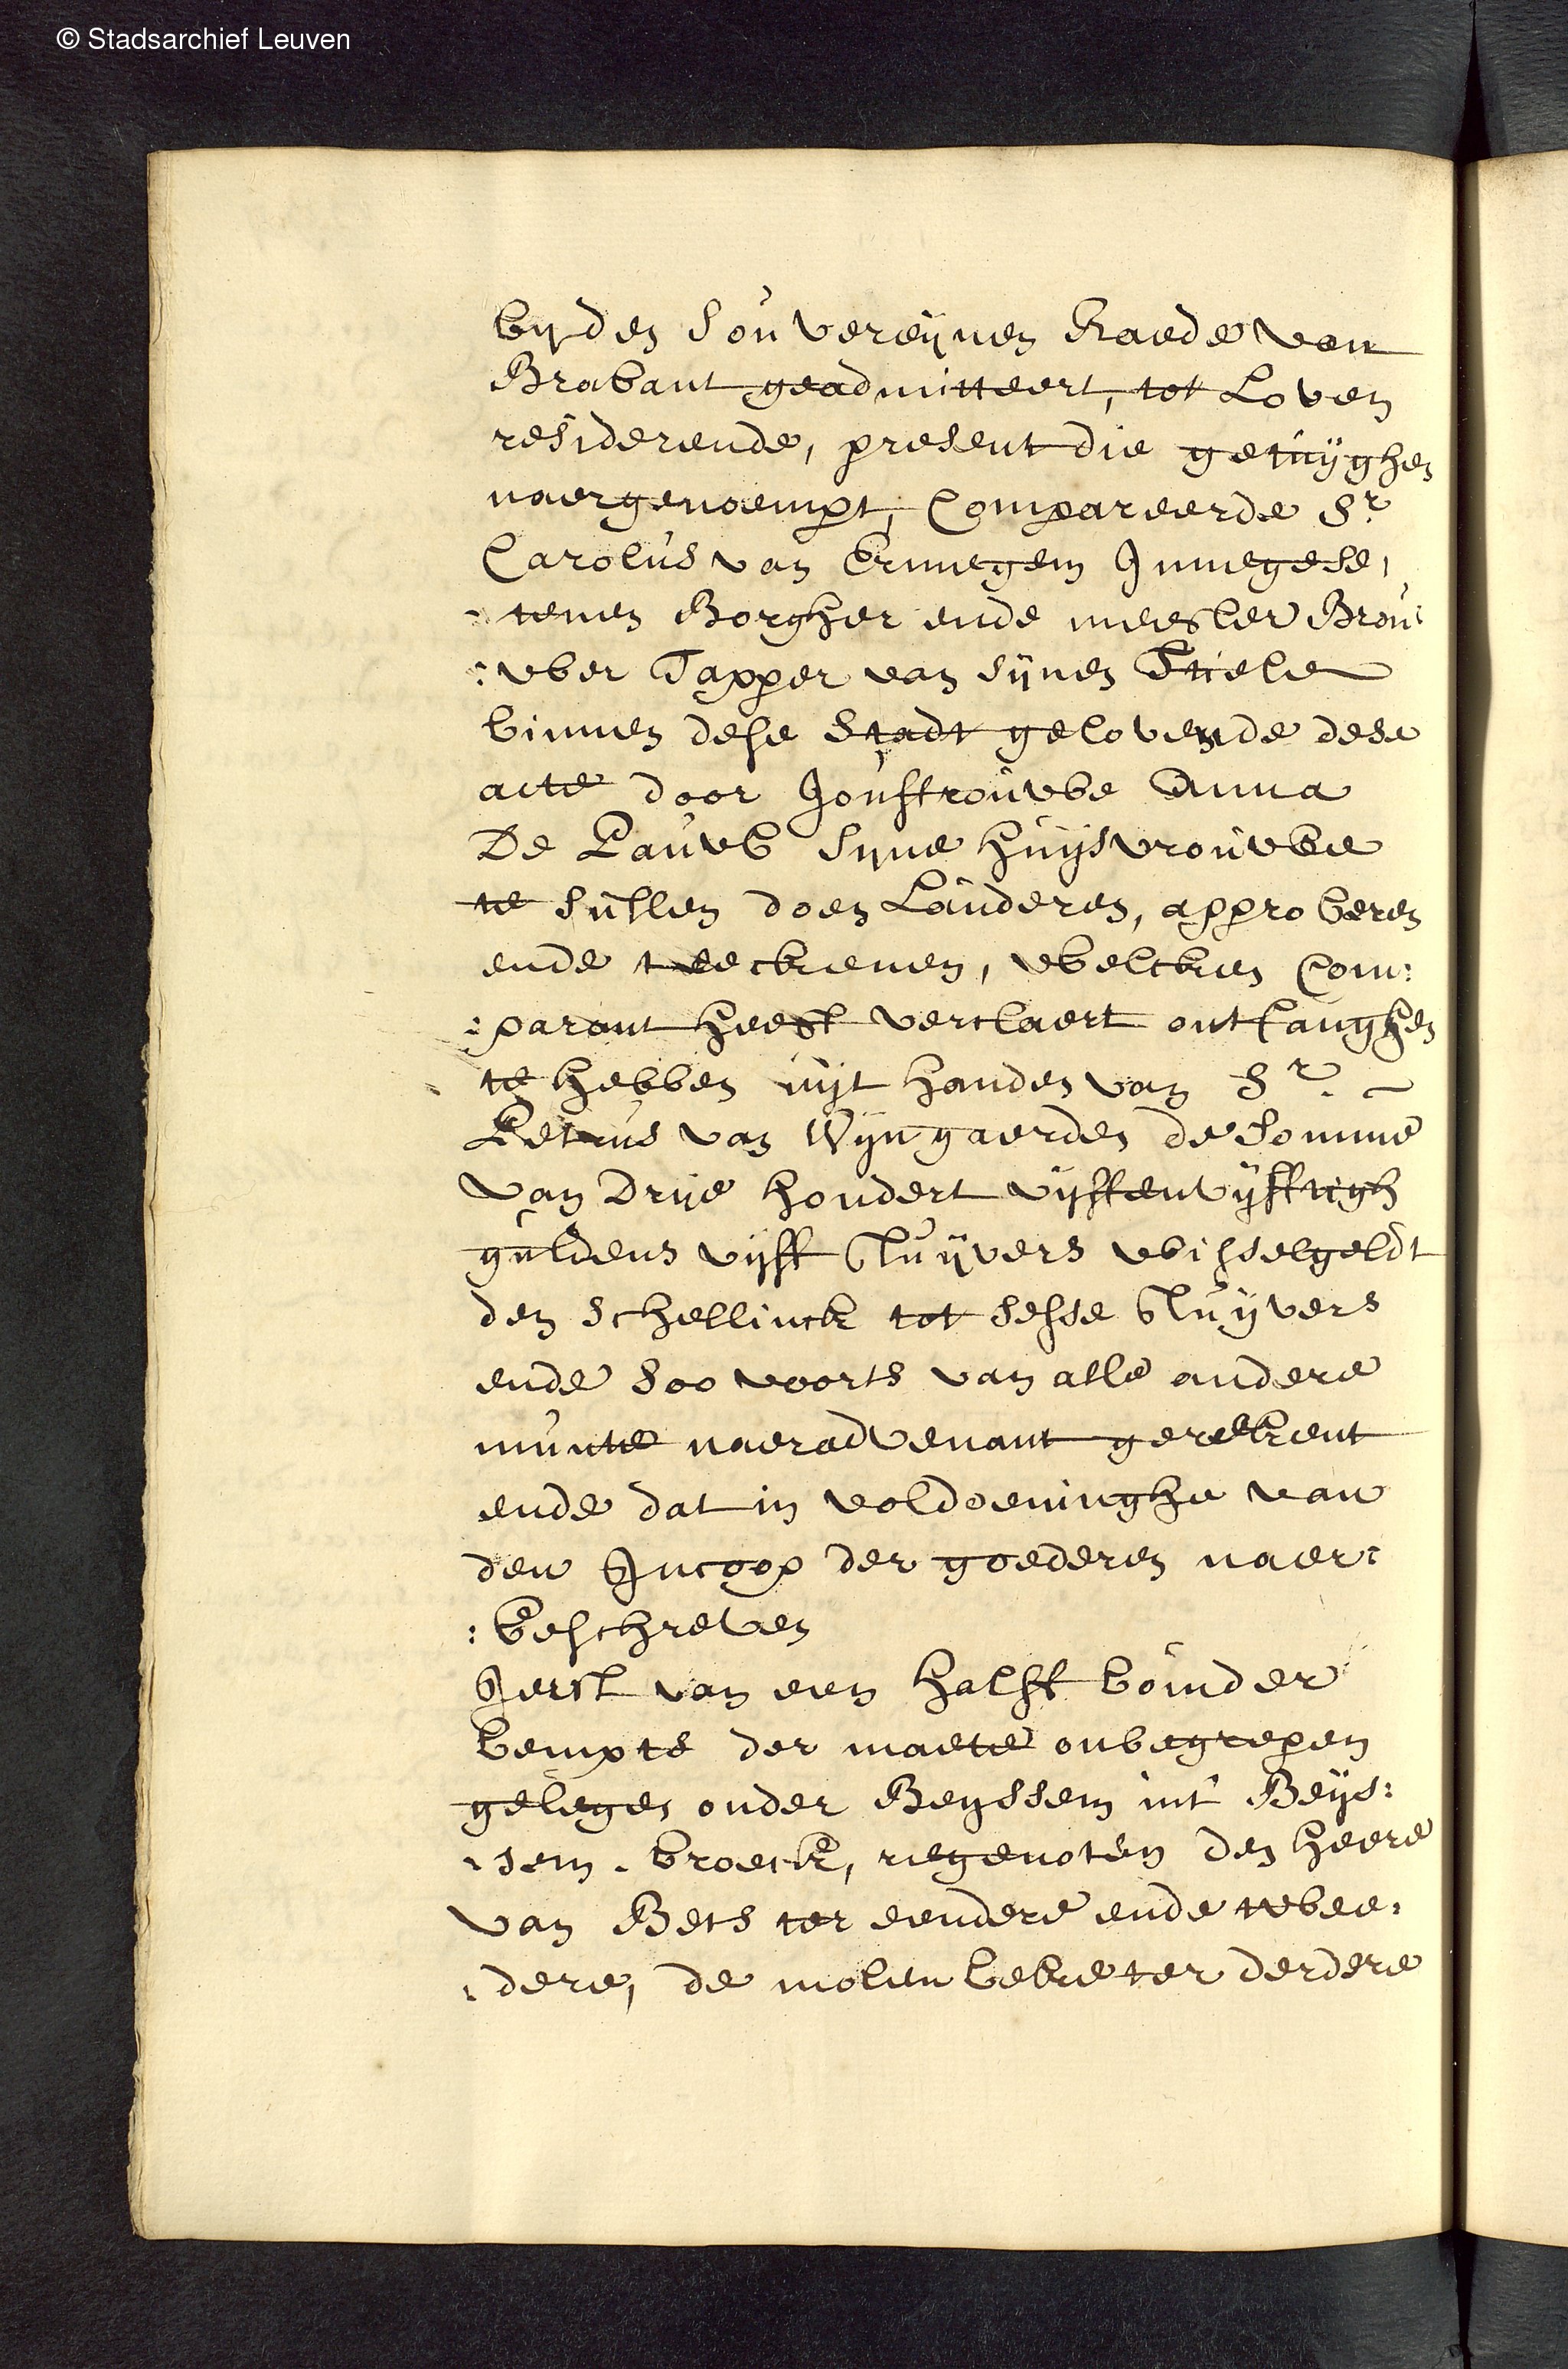 © Stadsarchief Leuven
bijden Souvereijnen Raede van
Brabant geadmitteert, tot Loven
residerende, present die getuijghen
naergenoempt, Compareerde Sr
Carolus van Ermegem Innegese,
:tenen Borgher ende meester Brou:
:wer Tapper van sijnen Stiele
binnen dese Stadt gelovende dese
acte door Jouffrouwe Anna
De Pauw sijne huijsvrouwe
te sullen doen Lauderen, approberen
ende teeckenen, welcken Com:
:parant heeft verclaert ontfanghen
te hebben uijt handen van Sr
Petrus van Wijngaerden de somme
van Drije hondert vijffenvijfftigh
guldens vijff stuijvers wisselgeldt
den schellinck tot sesse stuijvers
ende soo voorts van alle andere
munte naeradvenant gerekent
ende dat in voldoeninghe van
den Incoop der goederen naer:
:beschreven
Ierst van een halff bounder
bempts der maete onbegrepen
gelegen onder Beijssem int Beijs:
:sem broeck, regenoten den heere
van Bets ter eendere ende twee:
:dere, de molenbeke ter derdere